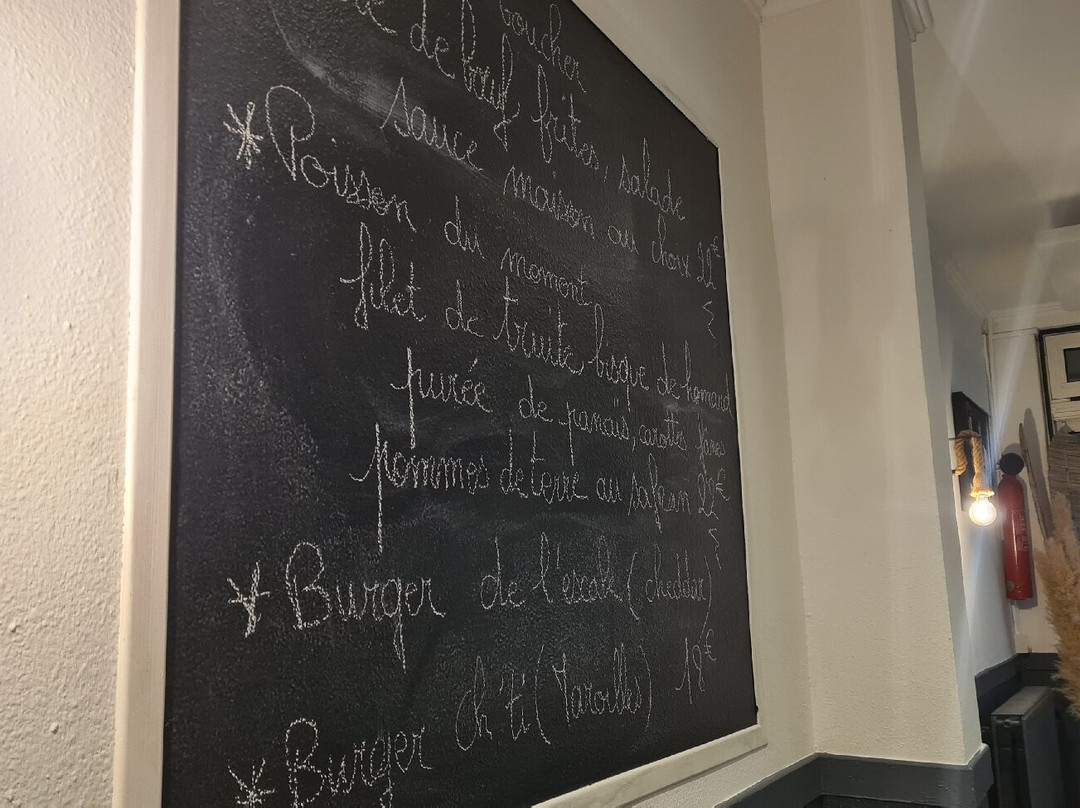 boucher
de boeuf frites, salade
sauce maison au choix 22€
* Poisson du moment
filet de truite bisque de homard
purée de panais, carottes fanes
pommes de terre au safran 22€
* Burger de l'escale (cheddar)
* Burger ch'ti (Maroilles) 19€